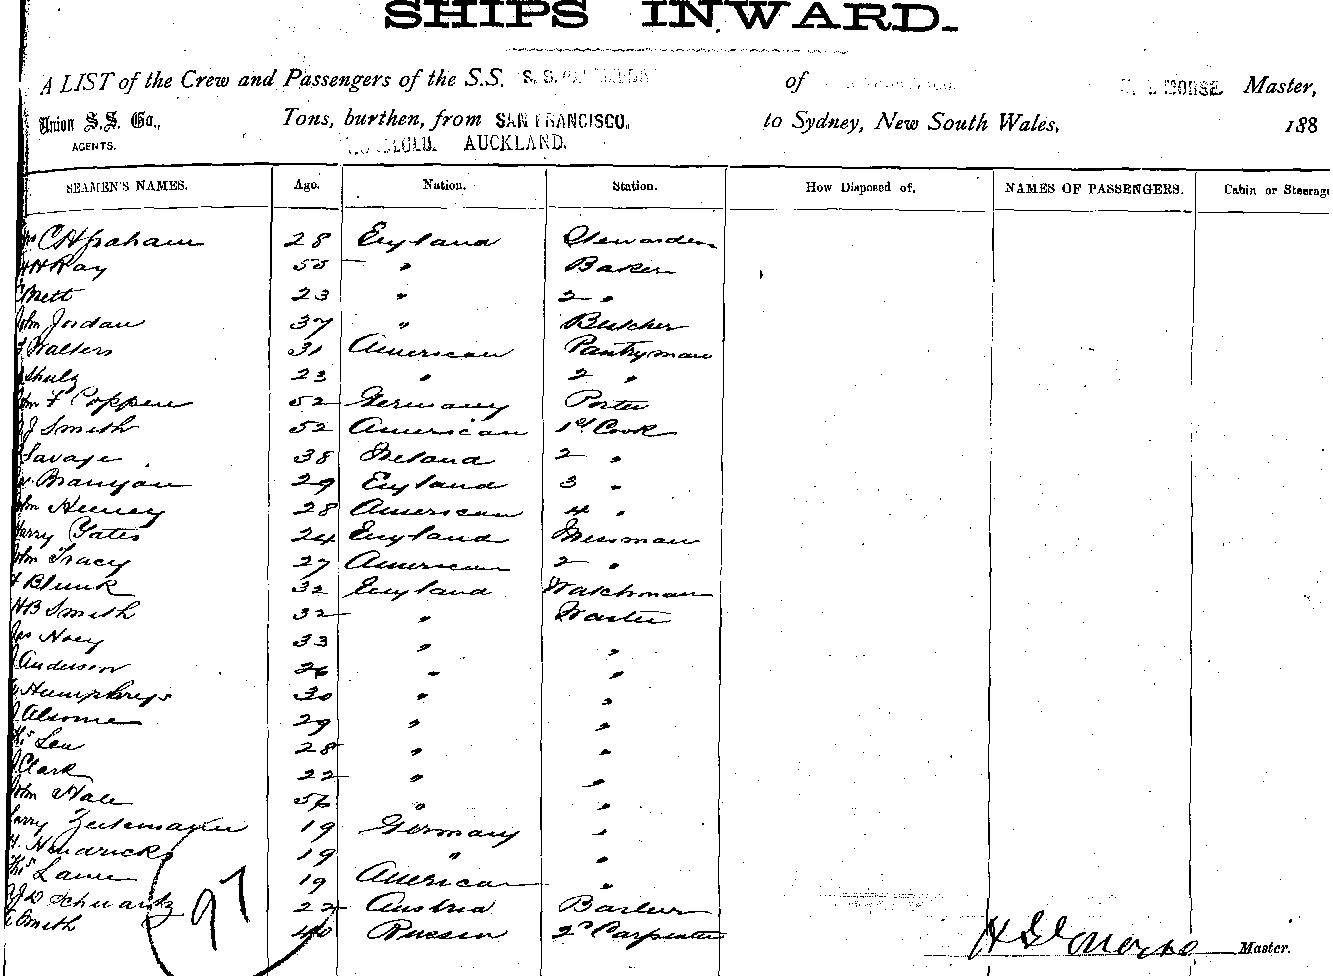 SHIPS INWARD.
A LIST of the Crew and Passengers of the S.S. of MORSE Master,
Union S.S. Co., Tons, burthen, from SAN FRANCISCO. to Sydney, New South Wales, 188
AGENTS. AUCKLAND.
SEAMEN'S NAMES. Age. Nation. Station. How Disposed of. NAMES OF PASSENGERS. Cabin or Steerage
Graham 28 England Stewardess
Ray 55 " Baker
Brett 23 " 2 "
John Jordan 37 " Butcher
Walters 31 American Pantryman
Shulz 23 " 2 "
Coppen 52 Germany Porter
J Smith 52 American 1st Cook
Savage 38 Ireland 2 "
Branyan 29 England 3 "
John 28 American 4 "
Harry Yates 24 England Messman
John Tracy 27 American 2 "
Blunk 32 England Watchman
HB Smith 32 " Waiter
Hoey 33 " "
Anderson 26 " "
Humphreys 30 " "
29 " "
28 " "
J Clark 22 " "
John Hale 56 " "
Harry 19 Germany "
Hendricks 19 " "
19 American "
Schwartz 22 Austria Barber
Smith 40 Russia 2d Carpenter
97
Morse Master.